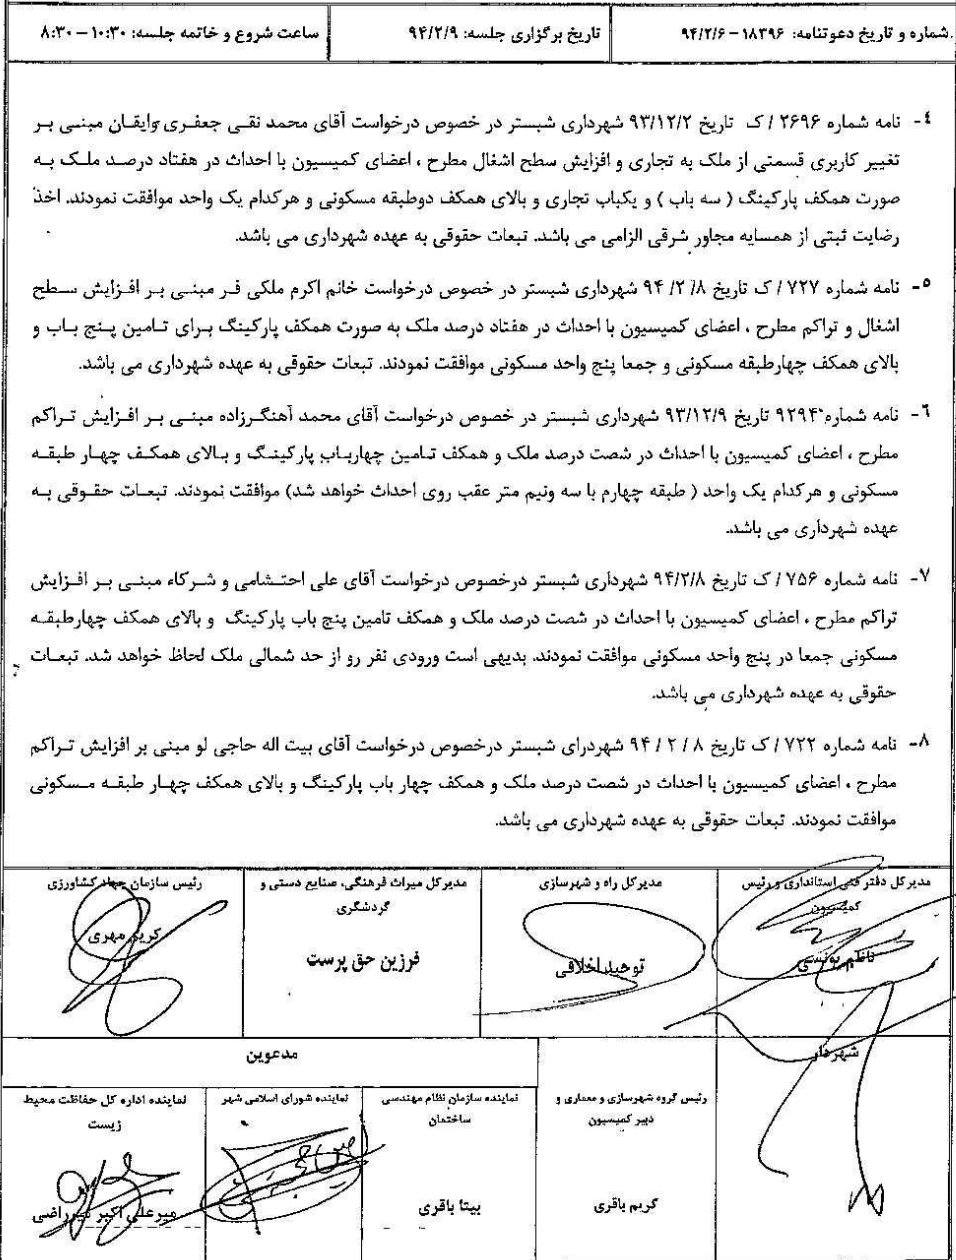 شماره و تاریخ دعوتنامه: ۱۸۳۹۶ – ۹۴/۲/۶
تاریخ برگزاری جلسه: ۹۴/۲/۹
ساعت شروع و خاتمه جلسه: ۱۰:۳۰ – ۸:۳۰
٤- نامه شماره ۲۶۹۶ / ک تاریخ ۹۳/۱۲/۲ شهرداری شبستر در خصوص درخواست آقای محمد نقی جعفری وایقان مبنی بر
تغییر کاربری قسمتی از ملک به تجاری و افزایش سطح اشغال مطرح ، اعضای کمیسیون با احداث در هفتاد درصد ملک به
صورت همکف پارکینگ ( سه باب ) و یکباب تجاری و بالای همکف دوطبقه مسکونی و هرکدام یک واحد موافقت نمودند. اخذ
رضایت ثبتی از همسایه مجاور شرقی الزامی می باشد. تبعات حقوقی به عهده شهرداری می باشد.
٥- نامه شماره ۷۲۷ / ک تاریخ ۸/ ۲/ ۹۴ شهرداری شبستر در خصوص درخواست خانم اکرم ملکی فر مبنی بر افزایش سطح
اشغال و تراکم مطرح ، اعضای کمیسیون با احداث در هفتاد درصد ملک به صورت همکف پارکینگ برای تامین پنج باب و
بالای همکف چهارطبقه مسکونی و جمعا پنج واحد مسکونی موافقت نمودند. تبعات حقوقی به عهده شهرداری می باشد.
٦- نامه شماره ۹۲۹۴ تاریخ ۹۳/۱۲/۹ شهرداری شبستر در خصوص درخواست آقای محمد آهنگرزاده مبنی بر افزایش تراکم
مطرح ، اعضای کمیسیون با احداث در شصت درصد ملک و همکف تامین چهارباب پارکینگ و بالای همکف چهار طبقه
مسکونی و هرکدام یک واحد ( طبقه چهارم با سه ونیم متر عقب روی احداث خواهد شد) موافقت نمودند. تبعات حقوقی به
عهده شهرداری می باشد.
٧- نامه شماره ۷۵۶ / ک تاریخ ۹۴/۲/۸ شهرداری شبستر درخصوص درخواست آقای علی احتشامی و شرکاء مبنی بر افزایش
تراکم مطرح ، اعضای کمیسیون با احداث در شصت درصد ملک و همکف تامین پنج باب پارکینگ و بالای همکف چهارطبقه
مسکونی جمعا در پنج واحد مسکونی موافقت نمودند. بدیهی است ورودی نفر رو از حد شمالی ملک لحاظ خواهد شد. تبعات
حقوقی به عهده شهرداری می باشد.
٨- نامه شماره ۷۲۲ / ک تاریخ ۸ / ۲ / ۹۴ شهردرای شبستر درخصوص درخواست آقای بیت اله حاجی لو مبنی بر افزایش تراکم
مطرح ، اعضای کمیسیون با احداث در شصت درصد ملک و همکف چهار باب پارکینگ و بالای همکف چهار طبقه مسکونی
موافقت نمودند. تبعات حقوقی به عهده شهرداری می باشد.
مدیرکل دفتر فنی استانداری و رئیس
کمیسیون
ناظم یونسی
مدیرکل راه و شهرسازی
توحید اخلاقی
مدیرکل میراث فرهنگی، صنایع دستی و
گردشگری
فرزین حق پرست
رئیس سازمان جهاد کشاورزی
کریم مهری
شهردار
رئیس گروه شهرسازی و معماری و
دبیر کمیسیون
کریم باقری
مدعوین
نماینده سازمان نظام مهندسی
ساختمان
بیتا باقری
نماینده شورای اسلامی شهر
نماینده اداره کل حفاظت محیط
زیست
میرعلی اکبر میرراضی